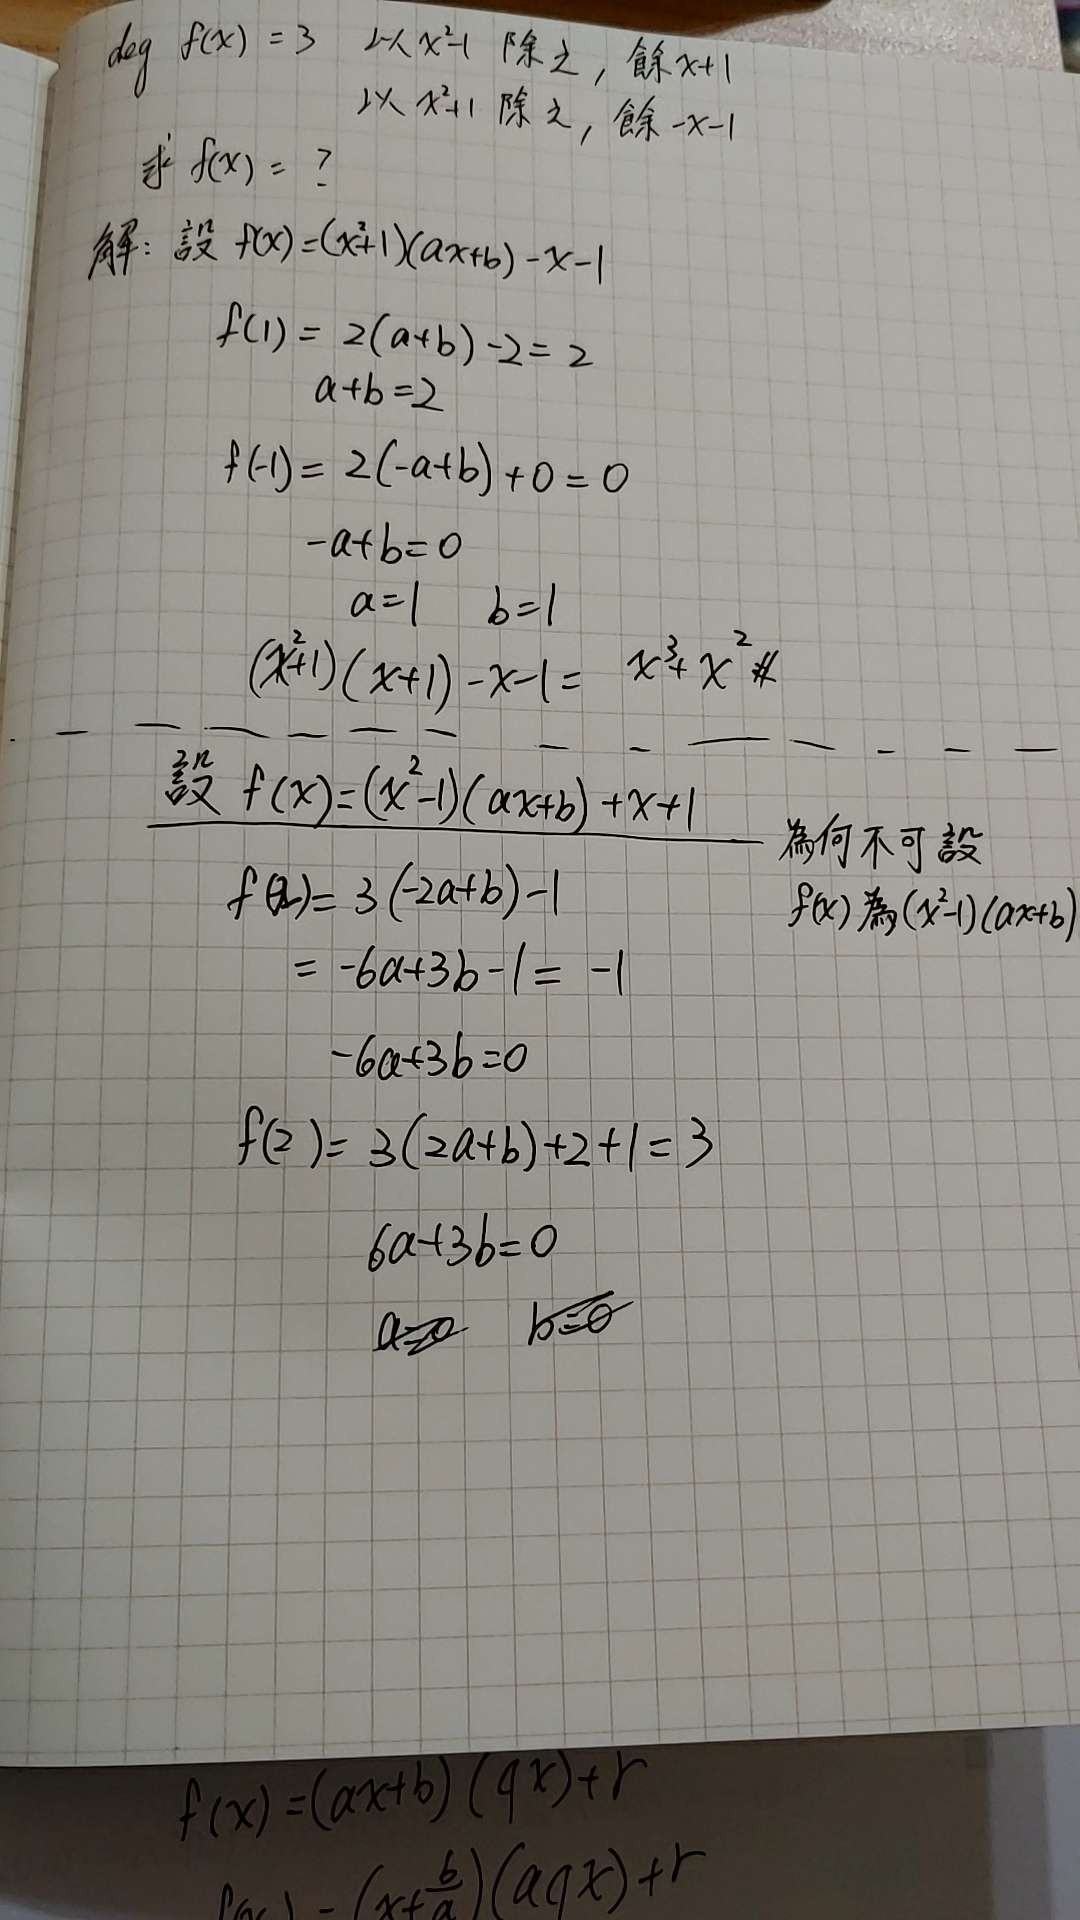 deg f(x) = 3 以 x²-1 除之, 餘 x+1
以 x²+1 除之, 餘 -x-1
求 f(x) = ?
解: 設 f(x) = (x²+1)(ax+b) -x-1
f(1) = 2(a+b) -2 = 2
a+b=2
f(-1) = 2(-a+b) +0 = 0
-a+b=0
a=1 b=1
(x²+1)(x+1) -x-1 = x³+x² #
設 f(x) = (x²-1)(ax+b) +x+1
為何不可設
f(x) 為 (x²-1)(ax+b)
= 3(-2a+b) -1
= -6a+3b-1 = -1
-6a+3b=0
f(2) = 3(2a+b)+2+1 = 3
6a+3b=0
a=0 b=0
f(x) = (ax+b)(qx)+r
(x+b/a)(aqx)+r